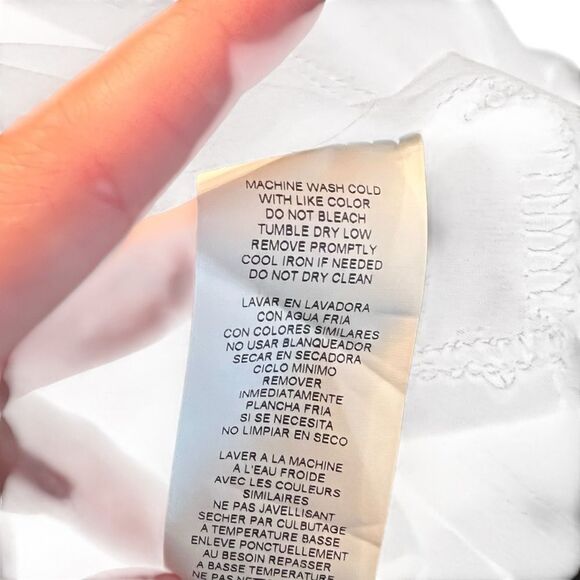 MACHINE WASH COLD
WITH LIKE COLOR
DO NOT BLEACH
TUMBLE DRY LOW
REMOVE PROMPTLY
COOL IRON IF NEEDED
DO NOT DRY CLEAN
LAVAR EN LAVADORA
CON AGUA FRIA
CON COLORES SIMILARES
NO USAR BLANQUEADOR
SECAR EN SECADORA
CICLO MINIMO
REMOVER
INMEDIATAMENTE
PLANCHA FRIA
SI SE NECESITA
NO LIMPIAR EN SECO
LAVER A LA MACHINE
A L'EAU FROIDE
AVEC LES COULEURS
SIMILAIRES
NE PAS JAVELLISANT
SECHER PAR CULBUTAGE
A TEMPERATURE BASSE
ENLEVE PONCTUELLEMENT
AU BESOIN REPASSER
A BASSE TEMPERATURE
NE PAS